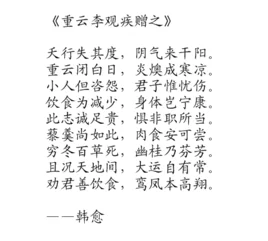 《重云李观疾赠之》
天行失其度，阴气来干阳。
重云闭白日，炎燠成寒凉。
小人但咨怨，君子惟忧伤。
饮食为减少，身体岂宁康。
此志诚足贵，惧非职所当。
藜羹尚如此，肉食安可尝。
穷冬百草死，幽桂乃芬芳。
且况天地间，大运自有常。
劝君善饮食，鸾凤本高翔。
——韩愈